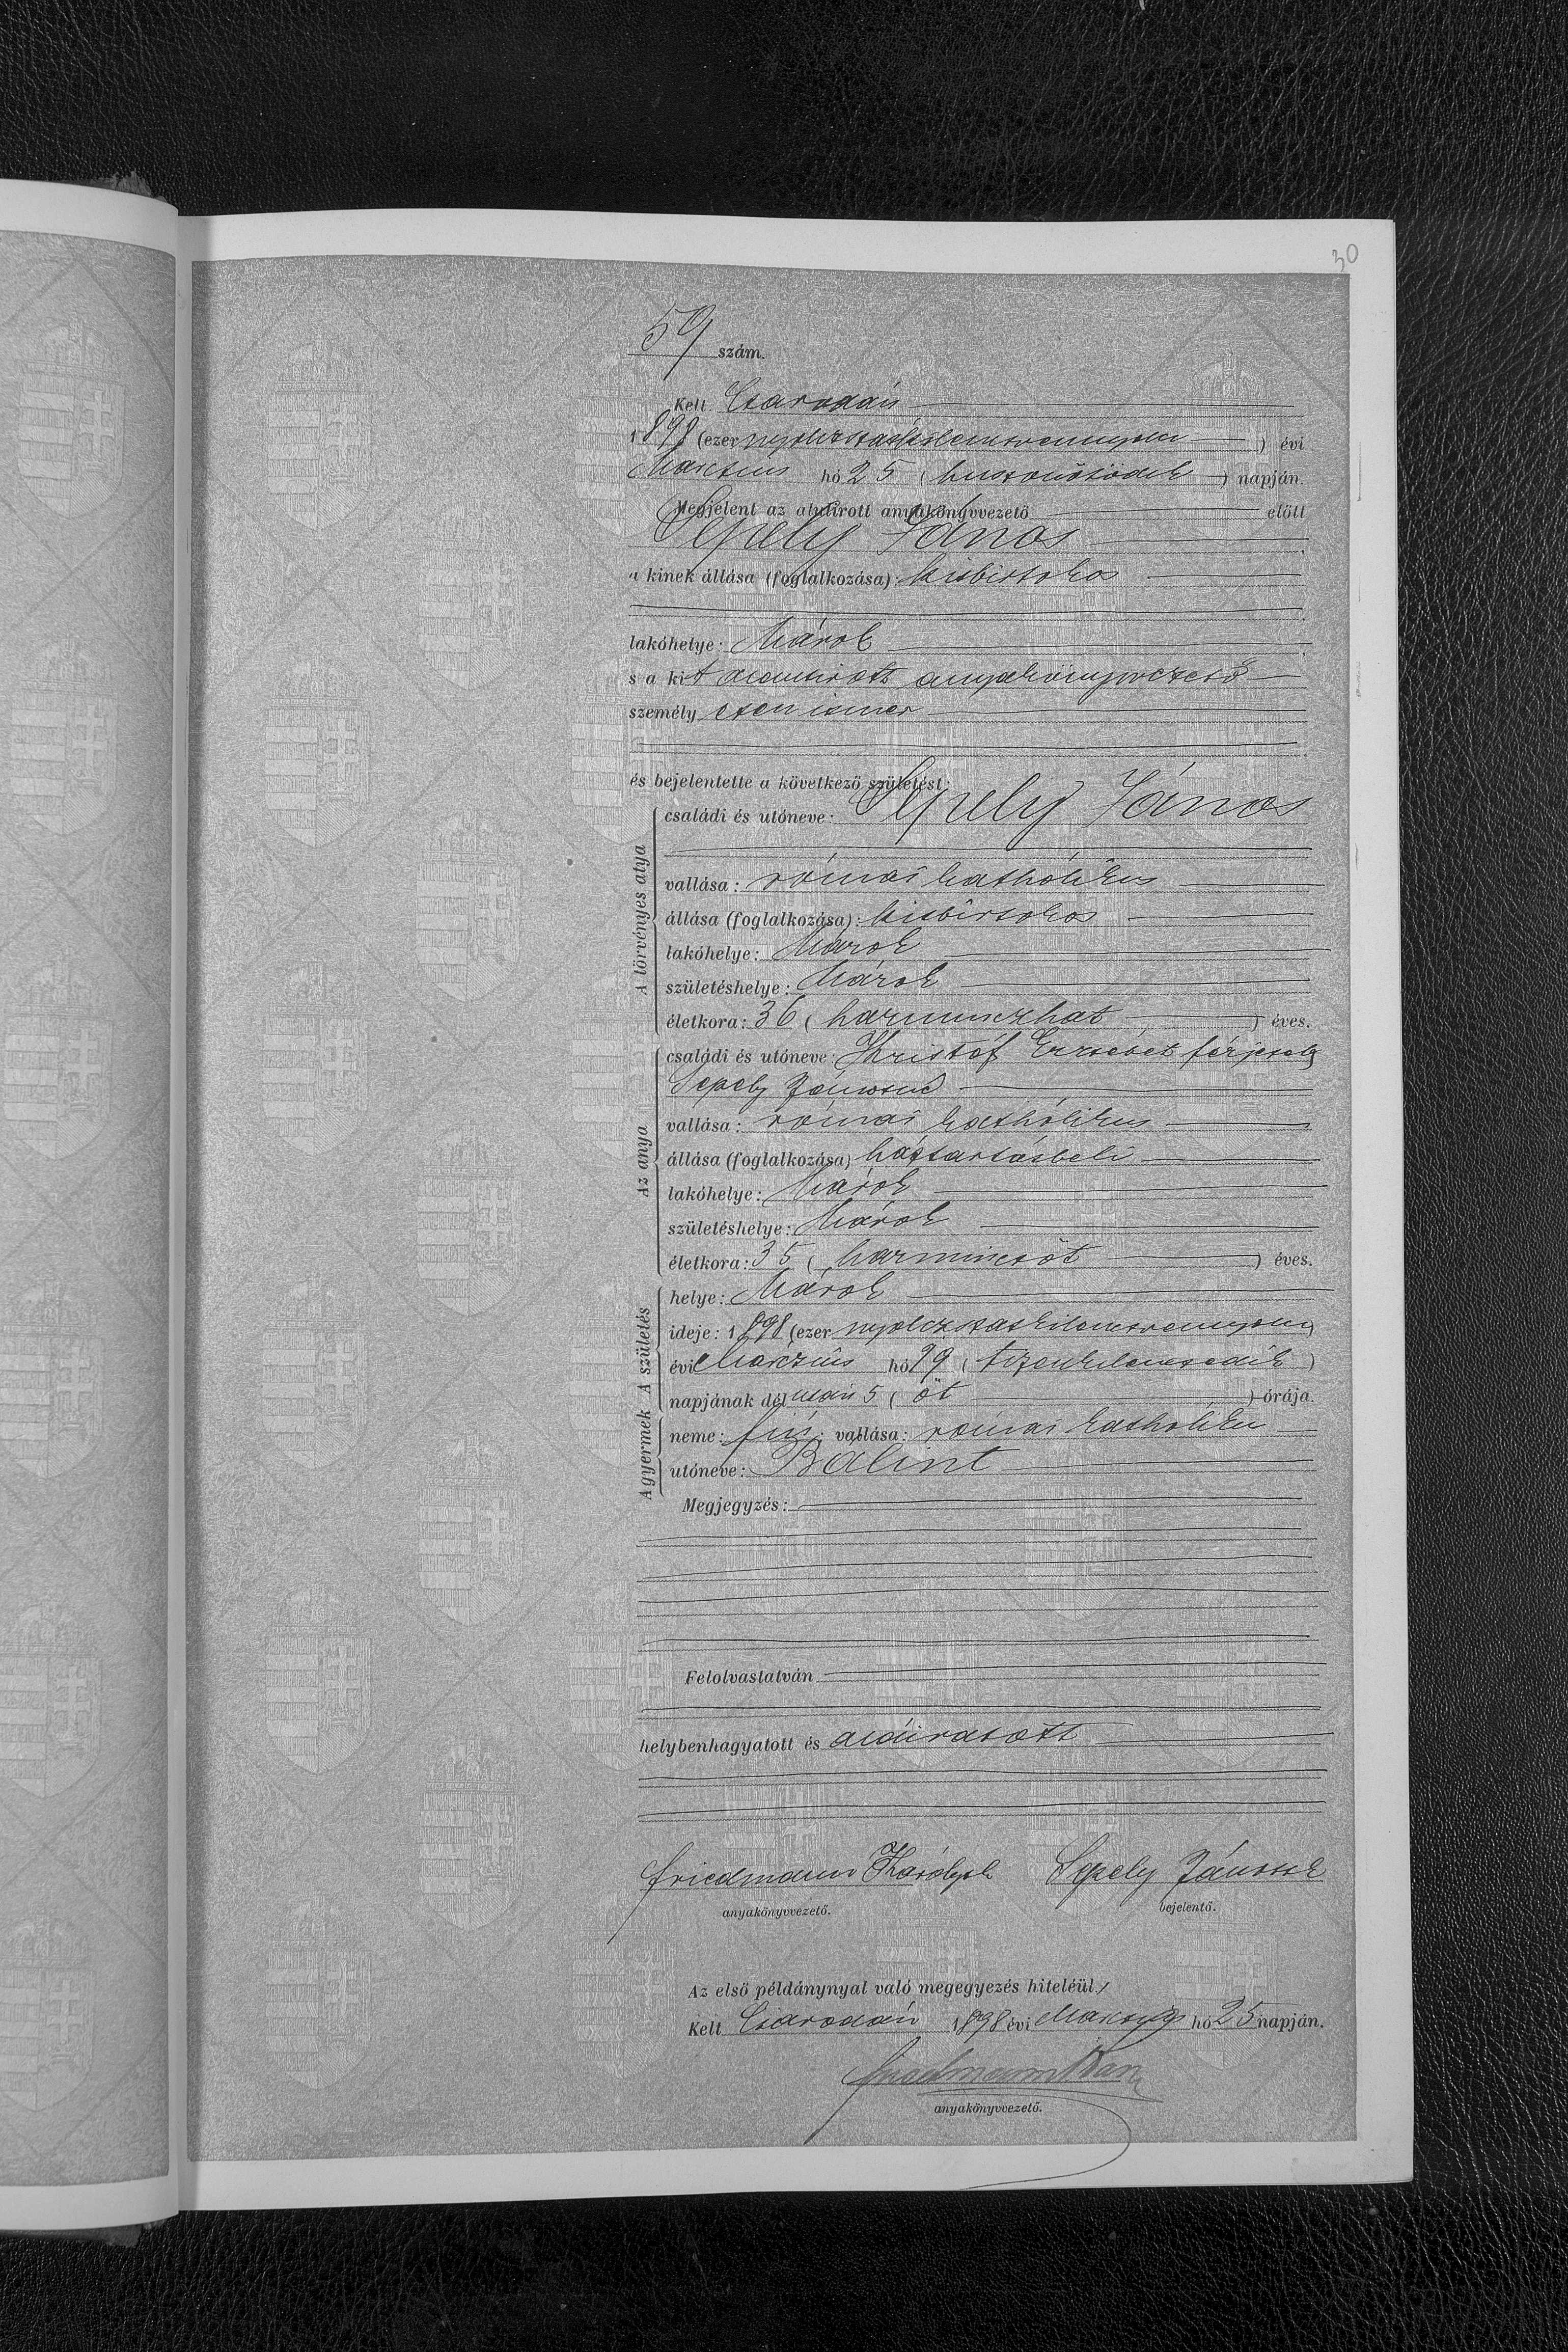 30
59 szám.
Kelt Csarodán
1898 (ezer nyolczszázkilenczvennyolcz) évi
Márczius hó 25 (huszonötödik) napján.
Megjelent az alulirott anyakönyvvezető előtt
Sepely János
a kinek állása (foglalkozása): kisbirtokos
lakóhelye: Márok
s a kit alantirott anyakönyvvezető
személyesen ismer
és bejelentette a következő születést:
A törvényes atya
családi és utóneve: Sepely János
vallása: római katholikus
állása (foglalkozása): kisbirtokos
lakóhelye: Márok
születéshelye: Márok
életkora: 36 (harminczhat) éves.
Az anya
családi és utóneve: Kristóf Erzsébet férjezett
Sepely Jánosné
vallása: római katholikus
állása (foglalkozása) háztartásbeli
lakóhelye: Márok
születéshelye: Márok
életkora: 35 (harminczöt) éves.
A születés
helye: Márok
ideje: 1898 (ezer nyolczszázkilenczvennyolcz)
évi Márczius hó 19 (tizenkilenczedik)
napjának délután 5 (öt) órája.
A gyermek
neme: fiú; vallása: római katholikus
utóneve: Bálint
Megjegyzés:
Felolvastatván
helybenhagyatott és aláiratott
Friedmann Károly sk Sepely János sk
anyakönyvvezető. bejelentő.
Az első példánynyal való megegyezés hiteléül.
Kelt Csarodán 1898 évi Márczius hó 25 napján.
Friedmann
anyakönyvvezető.